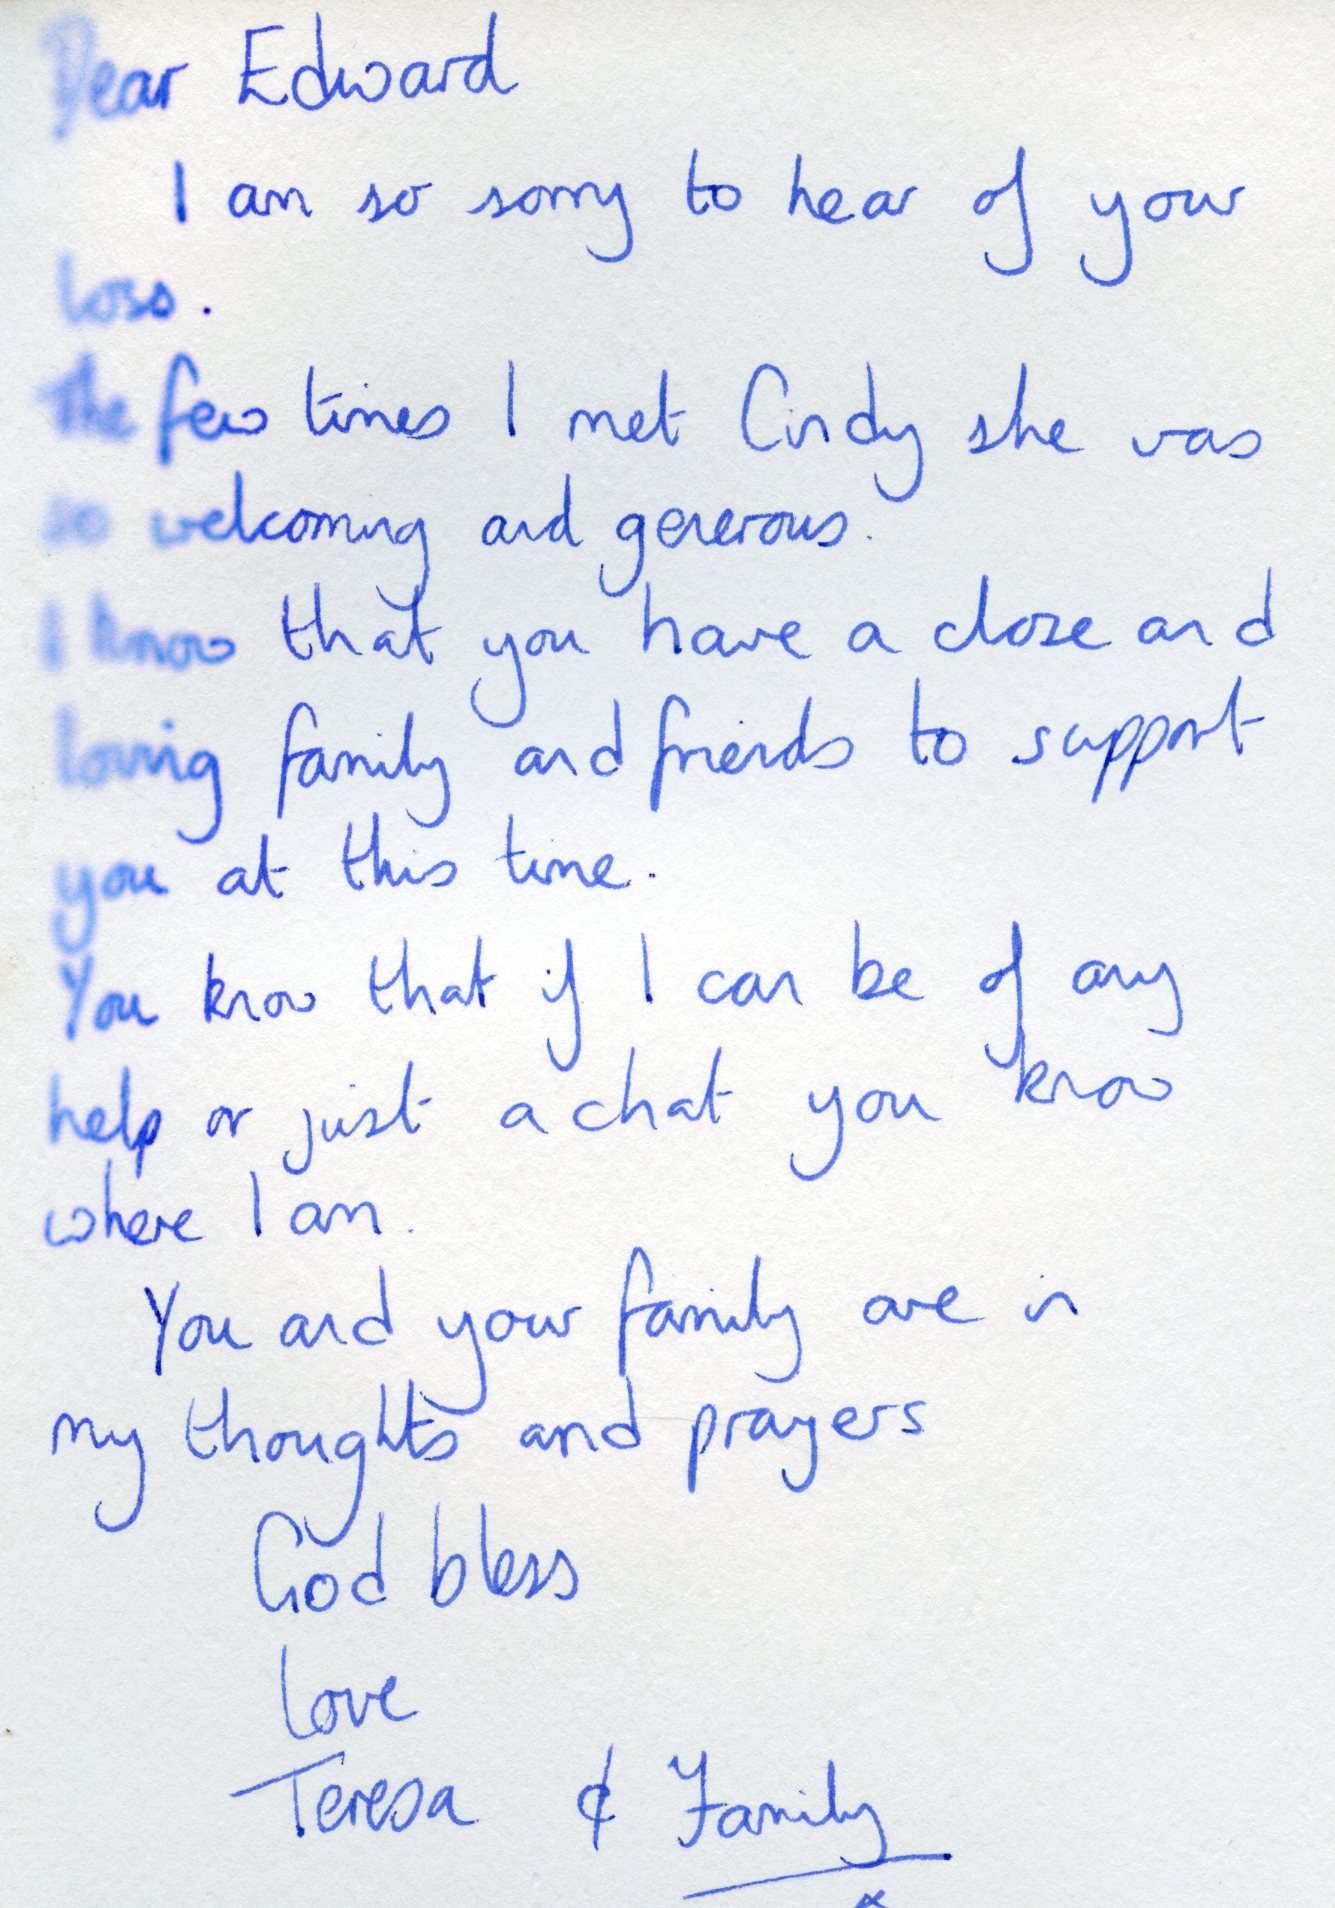 Dear Edward
I am so sorry to hear of your
loss.
The few times I met Cindy she was
so welcoming and generous.
I know that you have a close and
loving family and friends to support
you at this time.
You know that if I can be of any
help or just a chat you know
where I am.
You and your family are in
my thoughts and prayers
God bless
love
Teresa & Family
x